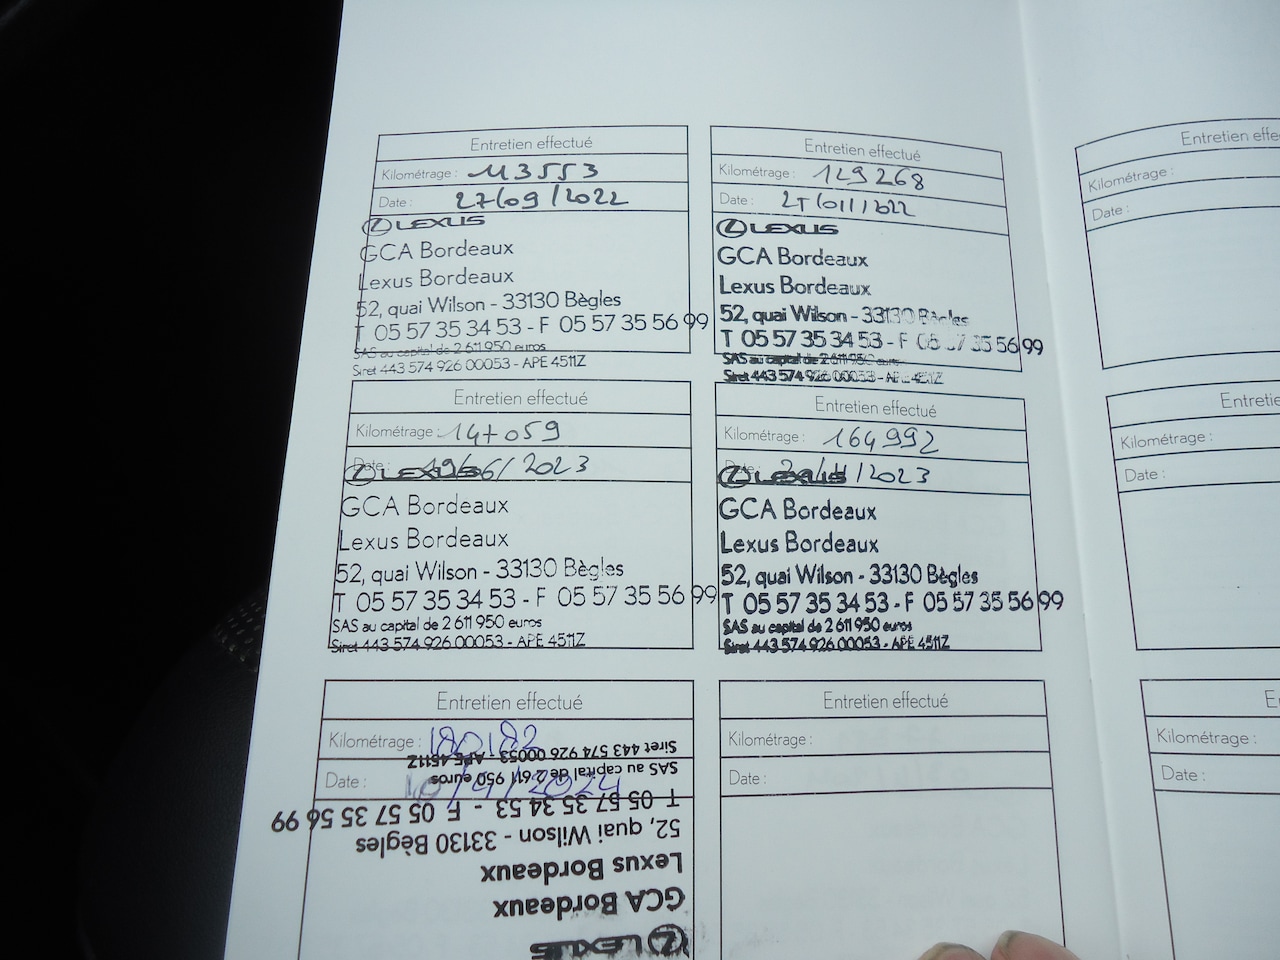 Entretien effectué
Kilométrage : 113553
Date : 27/09/2022
LEXUS
GCA Bordeaux
Lexus Bordeaux
52, quai Wilson - 33130 Bègles
T 05 57 35 34 53 - F 05 57 35 56 99
SAS au capital de 2 611 950 euros
Siret 443 574 926 00053 - APE 4511Z
Entretien effectué
Kilométrage : 129268
Date :
LEXUS
GCA Bordeaux
Lexus Bordeaux
52, quai Wilson - 33130 Bègles
T 05 57 35 34 53 - F 05 57 35 56 99
SAS au capital de 2 611 950 euros
Siret 443 574 926 00053 - APE 4511Z
Entretien effectué
Kilométrage : 147059
Date : /2023
LEXUS
GCA Bordeaux
Lexus Bordeaux
52, quai Wilson - 33130 Bègles
T 05 57 35 34 53 - F 05 57 35 56 99
SAS au capital de 2 611 950 euros
Siret 443 574 926 00053 - APE 4511Z
Entretien effectué
Kilométrage : 164992
Date : /2023
LEXUS
GCA Bordeaux
Lexus Bordeaux
52, quai Wilson - 33130 Bègles
T 05 57 35 34 53 - F 05 57 35 56 99
SAS au capital de 2 611 950 euros
Siret 443 574 926 00053 - APE 4511Z
Entretien effectué
Kilométrage : 180182
Date :
LEXUS
GCA Bordeaux
Lexus Bordeaux
52, quai Wilson - 33130 Bègles
T 05 57 35 34 53 - F 05 57 35 56 99
SAS au capital de 2 611 950 euros
Siret 443 574 926 00053 APE 4511Z
Entretien effectué
Kilométrage :
Date :
Entretien effe
Kilométrage :
Date :
Entretie
Kilométrage :
Date :
E
Kilométrage :
Date :